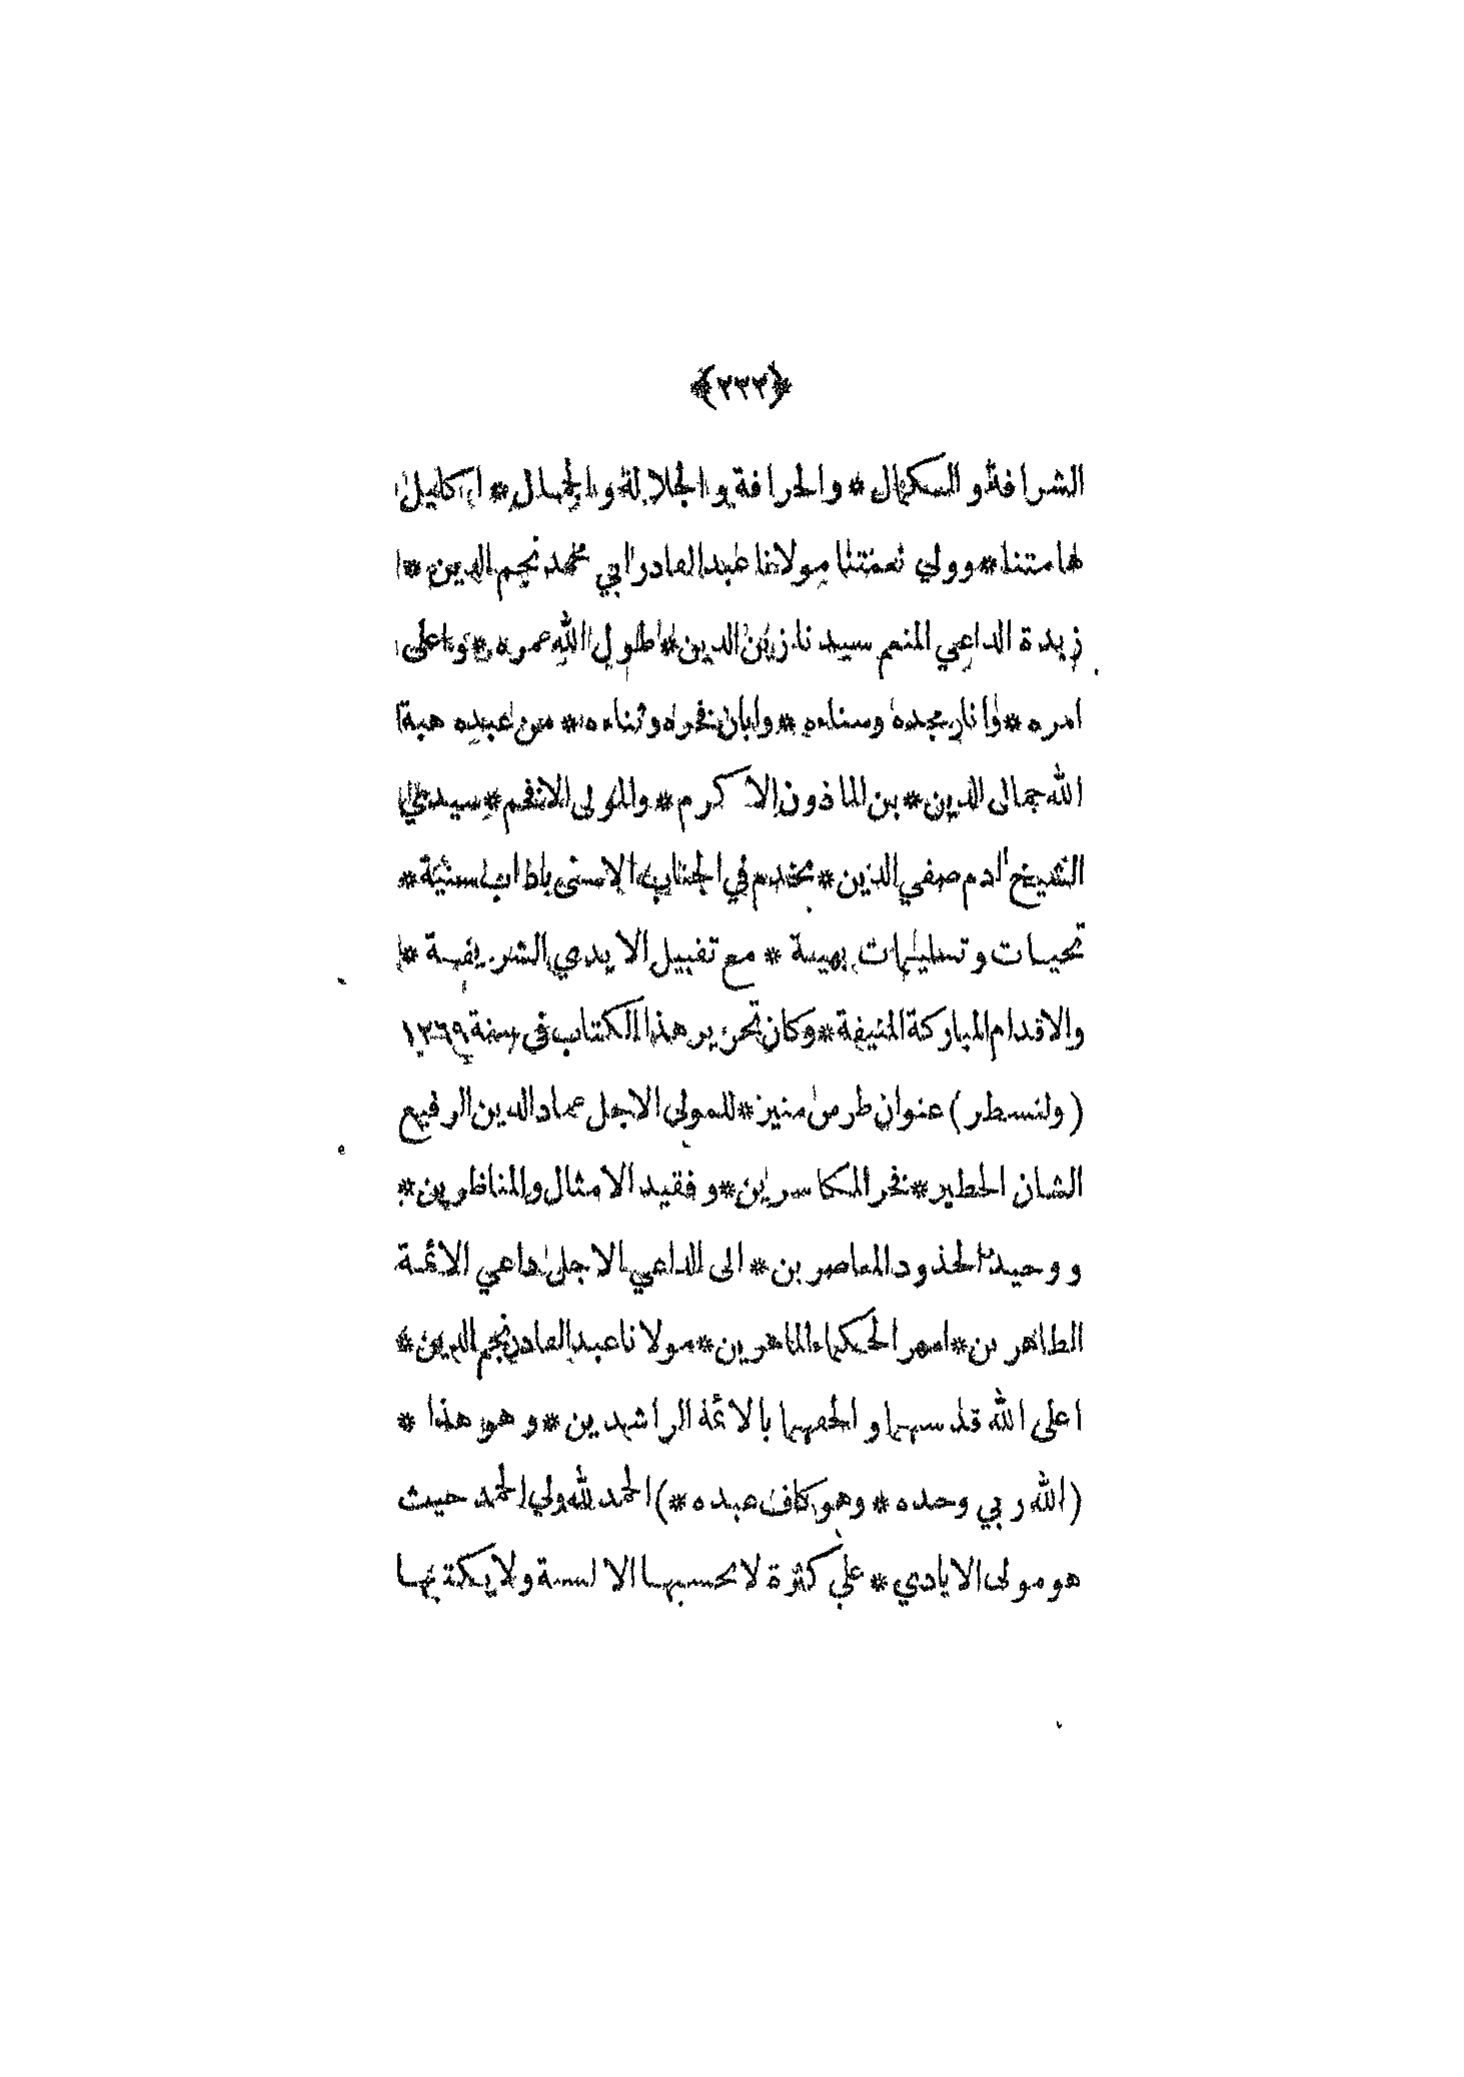 ﴿٢٣٢﴾
الشرافة والكمال * والحرافة والجلالة والجمال * اكليل
هامتنا * وولي نعمتنا مولانا عبد القادر ابي محمد نجم الدين *
زبدة الداعي المنعم سيدنا زين الدين * اطول الله عمره * واعلى
امره * وانار مجده وسناءه * وابان فخره وثناءه * من عبيده هبة
الله جمال الدين * بن الماذون الاكرم * والمولى الافخم * سيدي
الشيخ آدم صفي الدين * يخدم في الجناب الاسنى باداب سنية *
تحيات وتسليمات بهية * مع تقبيل الايدي الشريفة *
والاقدام المباركة المنيفة * وكان تحرير هذا الكتاب في سنة ١٢٦٩
(ولنسطر) عنوان طرس منير * للمولى الاجل عماد الدين الرفيع
الشان الخطير * فخر المكاسرين * وفقيد الامثال والمناظرين *
ووحيد الحدود المعاصرين * الى الداعي الاجل داعي الائمة
الطاهرين * امهر الحكماء الماهرين * مولانا عبد القادر نجم الدين *
اعلى الله قدسهما والحقهما بالائمة الراشدين * وهو هذا *
(الله ربي وحده * وهو كاف عبده *) الحمد لله ولي الحمد حيث
هو مولى الايادي * على كثرة لا تحسبها الالسنة ولا يكتبها